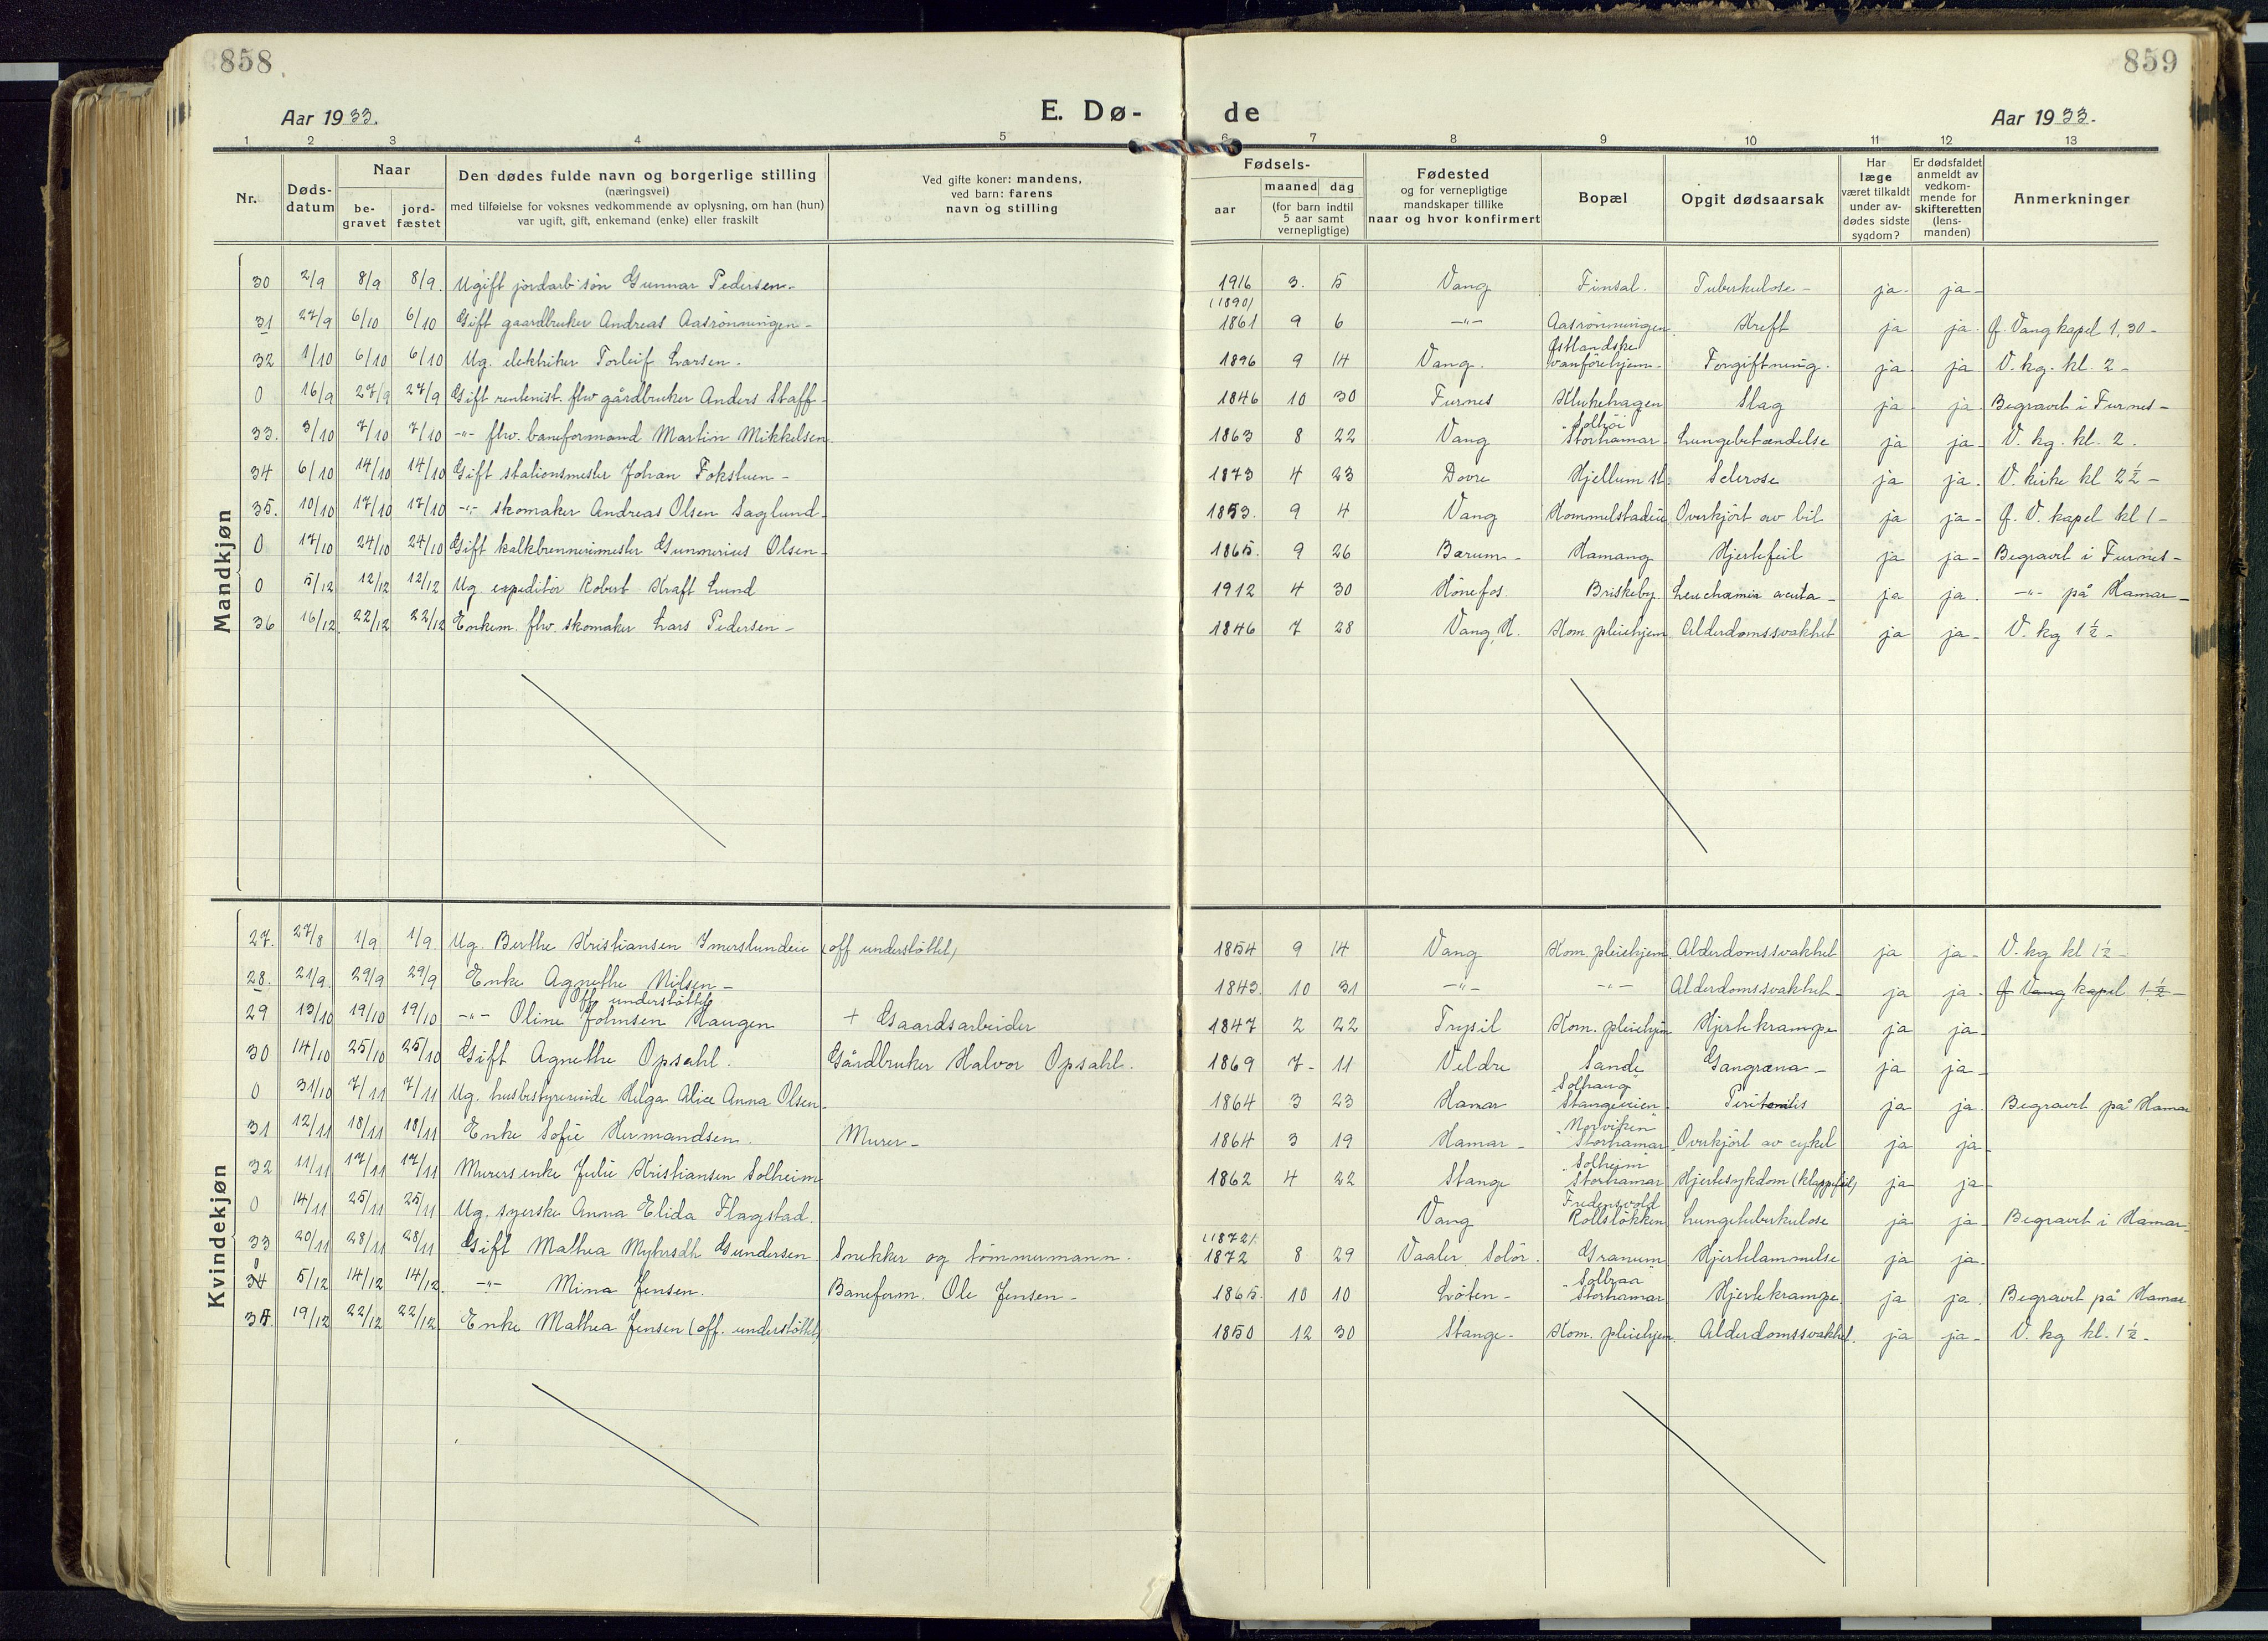 858
859
Aar 1933.
E. Dø-
de
Aar 1933.
1 2 3 4 5 6 7 8 9 10 11 12 13
Nr.
Døds-
datum
Naar
be-
gravet
jord-
fæstet
Den dødes fulde navn og borgerlige stilling
(næringsvei)
med tilføielse for voksnes vedkommende av oplysning, om han (hun)
var ugift, gift, enkemand (enke) eller fraskilt
Ved gifte koner: mandens,
ved barn: farens
navn og stilling
Fødsels-
aar
maaned dag
(for barn indtil
5 aar samt
vernepligtige)
Fødested
og for vernepligtige
mandskaper tillike
naar og hvor konfirmert
Bopæl
Opgit dødsaarsak
Har
læge
været tilkaldt
under av-
dødes sidste
sygdom?
Er dødsfaldet
anmeldt av
vedkom-
mende for
skifteretten
(lens-
manden)
Anmerkninger
Mandkjøn
30 2/9 8/9 8/9. Ugift jordarb. søn Gunnar Pedersen - 1916 3. 5 Vang Finsal. Tuberkulose - ja - ja -
(1890)
31 27/9 6/10 6/10 Gift gaardbruker Andreas Aasrønningen - 1861 9 6 -"- Aasrønningen Kreft ja ja. f. Vang kapel 1,30 -
Østlandske
32 1/10 6/10 6/10 Ug. elektriker Torleif Larsen - 1896 9 14 Vang. vanförehjem - Forgiftning. ja ja V. kg. kl. 2 -
0 16/9 27/9 27/9 Gift rentenist. fhv gårdbruker Anders Staff - 1846 10 30 Furnes Klukehagen Slag ja ja Begravet i Furnes -
Solhöi
33. 3/10 7/10 7/10 -"- fhv. baneformand Martin Mikkelsen 1863 8 22 Vang Storhamar Lungebetændelse ja ja - V. kg. kl. 2.
34 6/10 14/10 14/10 Gift stationsmester Johan Fokstuen - 1873 4 23 Dovre Hjellum st. Sclerose ja ja. V. kirke kl 2 1/2 -
35. 10/10 17/10 17/10 -"- skomaker Andreas Olsen Saglund - 1853. 9 4 Vang Hommelstadeie Overkjört av bil ja ja - f. V. kapel kl 1 -
0 17/10 24/10 24/10 Gift kalkbrennerimester Gunnerius Olsen - 1865. 9 26 Bærum - Hamang Hjertefeil ja ja - Begravet i Furnes -
0 5/12 12/12 12/12 Ug. expeditör Robert Kraft Lund 1912 4 30 Hönefos. Briskeby. Leuchæmia acuta - ja ja. -"- på Hamar -
36 16/12. 22/12 22/12 Enkem. fhv. skomaker Lars Pedersen - 1846 7 28 Vang, H. Kom. pleiehjem Alderdomssvakhet ja ja - V. kg 1 1/2 -
Kvindekjøn
27. 27/8 1/9 1/9. Ug. Berthe Kristiansen Imerslundeie (off understöttet) 1854 9 14 Vang Kom. pleiehjem. Alderdomssvakhet ja ja - V. kg kl 1 1/2 -
28. 21/9. 29/9 29/9 Enke Agnethe Nilsen - 1843. 10 31 -"- -"- Alderdomssvakhet - ja ja - f Vang kapel 1 1/2 -
Off. understöttet
29 13/10 19/10 19/10 -"- Oline Johnsen Haugen + Gaardsarbeider 1847 2 22 Trysil Kom. pleiehjem Hjertekrampe ja ja -
30 14/10 25/10 25/10 Gift Agnethe Opsahl. Gårdbruker Halvor Opsahl. 1869 7 - 11 Veldre Sande Gangræna - ja ja -
"Solhaug"
0 31/10 7/11 7/11 Ug. husbestyrerinde Helga Alice Anna Olsen - 1864 3 23 Hamar Stangeveien. Peritonitis ja ja. Begravet på Hamar
"Norviken"
31 12/11 18/11 18/11 Enke Sofie Hermandsen. Murer - 1864 3 19 Hamar - Storhamar Overkjört av cykel ja ja
"Solheim"
32 11/11 17/11 17/11 Murers enke Julie Kristiansen Solheim 1862 4 22 Stange Storhamar Hjertesykdom (klappefeil) ja ja -
Fredensvold
0 14/11 25/11 25/11 Ug. syerske Anna Elida Flagstad. Vang Rollslökken Lungetuberkulose ja ja Begravet i Hamar
(1872).
33 20/11 28/11 28/11 Gift Mathea Gundersen Snekker og tömmermann. 1872 8 29 Vaaler, Solör. Granum Hjertelammelse ja ja -
"Solbraa"
0 34 5/12 14/12 14/12. -"- Mina Jensen. Baneform. Ole Jensen - 1865. 10 10 Löten - Storhamar Hjertekrampe. ja ja. Begravet på Hamar
34. 19/12 22/12 22/12. Enke Mathea Jensen (off. understöttet) 1850 12 30 Stange - Kom. pleiehjem. Alderdomssvakhet. ja ja - V. kg kl. 1 1/2 -